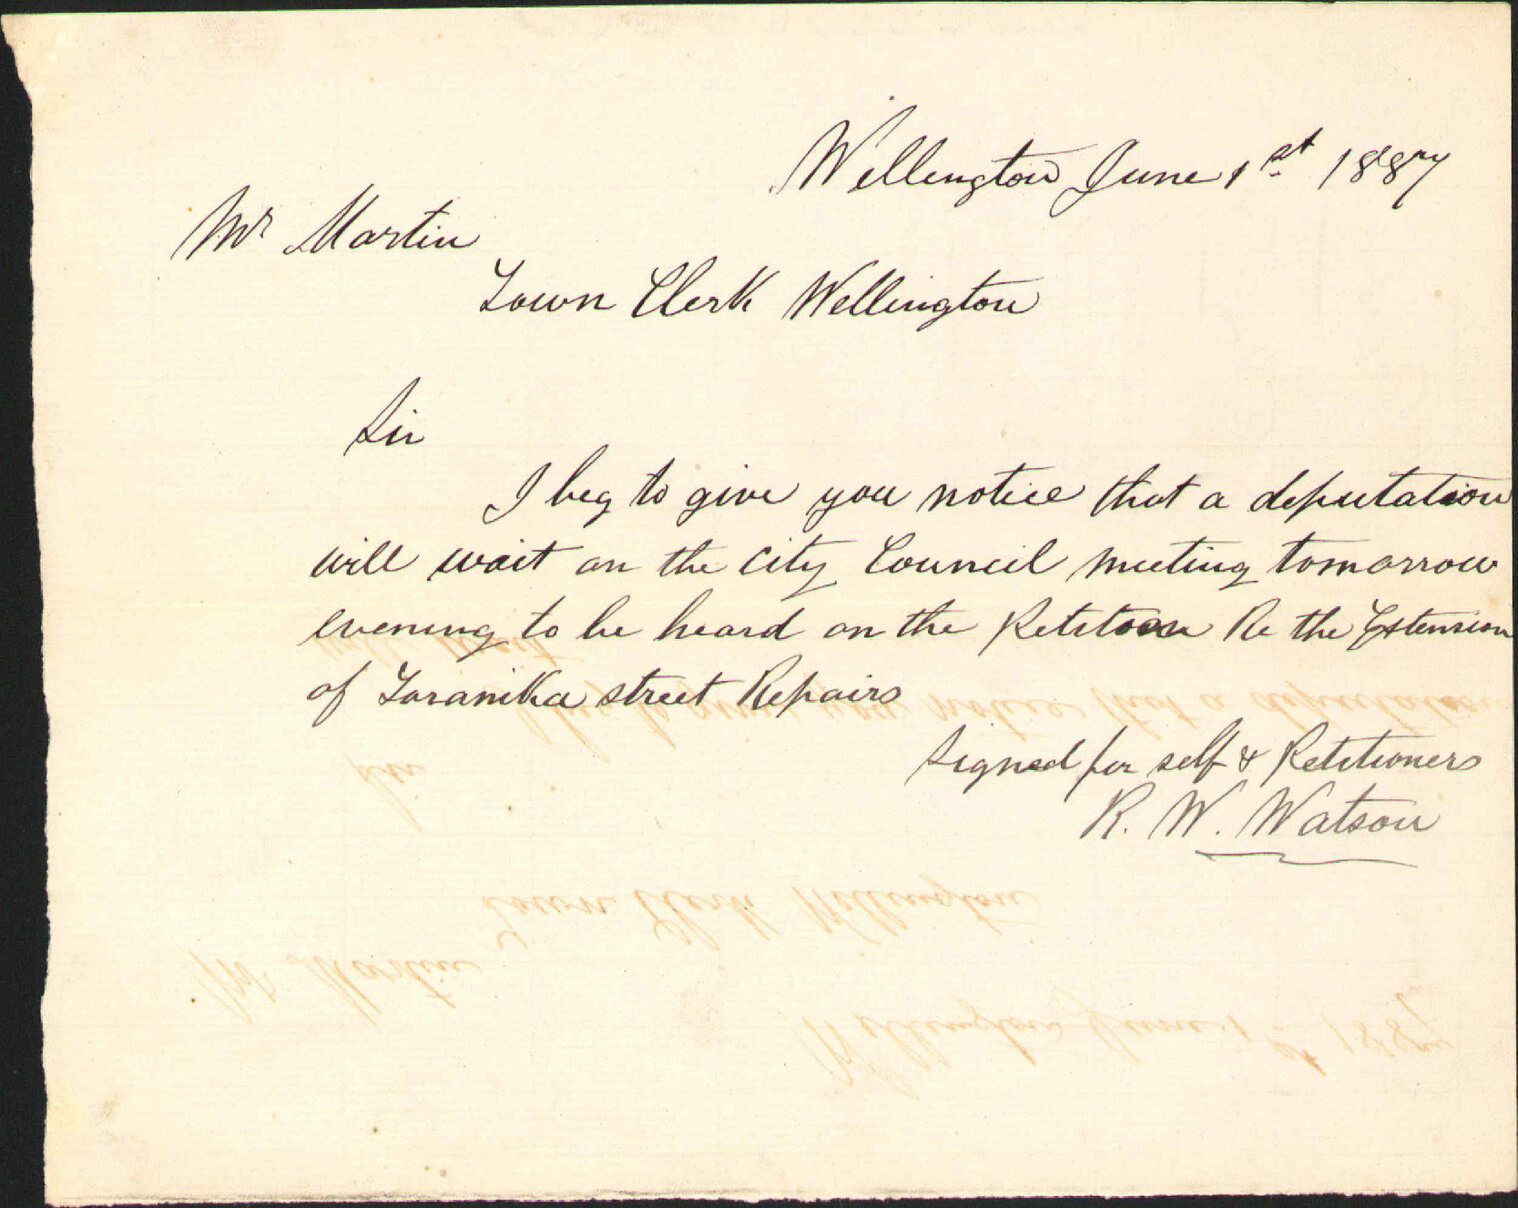 Wellington June 1st 1887
Mr Martin
Town Clerk Wellington
Sir
I beg to give you notice that a deputation
will wait on the City Council meeting tomorrow
evening to be heard on the Petition Re the Extension
of Taranika street Repairs
Signed for self & Petitioners
R. W. Watson